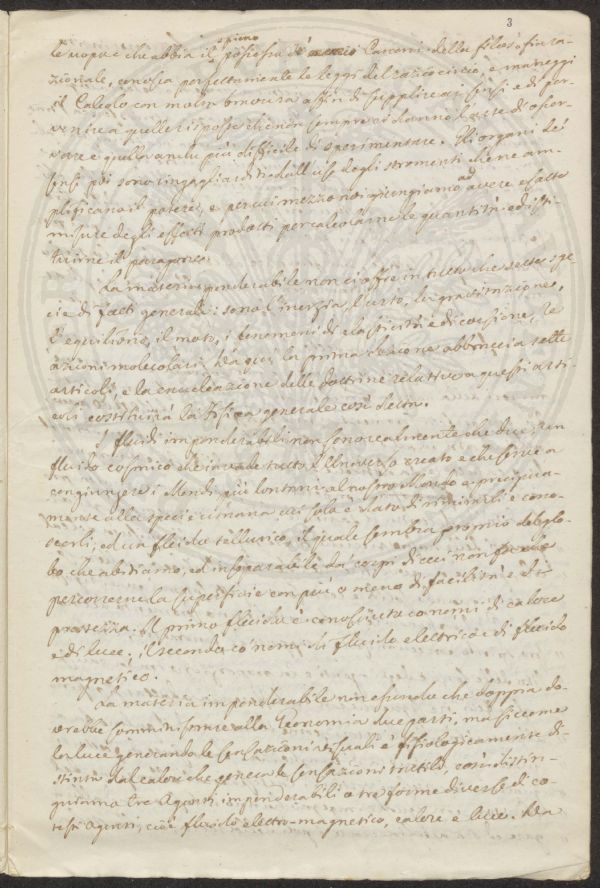 3
pieno
le uopo è che abbia il possesso de' Canoni della filosofia ra-
zionale, conosca perfettamente le leggi del raziocinio, e maneggi
il Calcolo con molta bravura affin di supplire ai sensi e di per
venire a quelle risposte che non sempre ci danno l'arte di osser
vare e quella anche più difficile di sperimentare. Gli organi de'
sensi poi sono ringagliarditi dall'uso degli stromenti che ne am-
plificano il potere, e per cui mezzo noi giungiamo ad avere esatte
misure degli effetti prodotti per calcolarne le quantità ed isti-
tuirne il paragone.
La materia ponderabile non ci offre in tutto che sette spe
cie di fatti generali: sono l'inerzia, l'urto, la gravitazione,
l'equilibrio, il moto, i fenomeni di elasticità e di coesione, le
azioni molecolari. Da qui la prima Sezione abbraccia sette
articoli, e la enucleazione delle dottrine relative a questi arti
coli costituirà la Fisica generale così detta.
I fluidi imponderabili non sono realmente che due: un
fluido cosmico che invade tutto l'Universo creato e che serve a
congiungere i Mondi più lontani al nostro Mondo e precipua-
mente alla specie umana cui solo è dato di rimirarli e cono-
scerli; ed un fluido tellurico, il quale sembra proprio del glo-
bo che abitiamo, ed inseparabile da' corpi di cui non
percorre la superficie con più o meno di facilità e di
prestezza. Il primo fluido è conosciuto co' nomi di calore
e di luce; il secondo co' nomi di fluido elettrico e di fluido
magnetico.
La materia imponderabile non essendo che doppia do-
vrebbe somministrare alla Economia due parti, ma siccome
la luce generando le sensazioni visuali è fisiologicamente di-
stinta dal calore che genera le sensazioni tattili, così distin-
guiamo tre Agenti imponderabili o tre forme diverse di co-
testi agenti, cioè fluido elettro-magnetico, calore e luce. Da